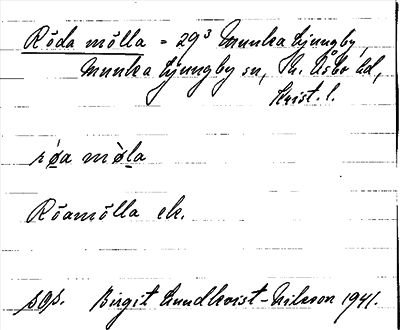 Röda mölla = 29³ Munka Ljungby,
Munka Ljungby sn, N. Åsbo hd,
Krist. l.
røa møla
Röamölla ek.
sOp. Birgit Lundkvist-Nilsson 1941.